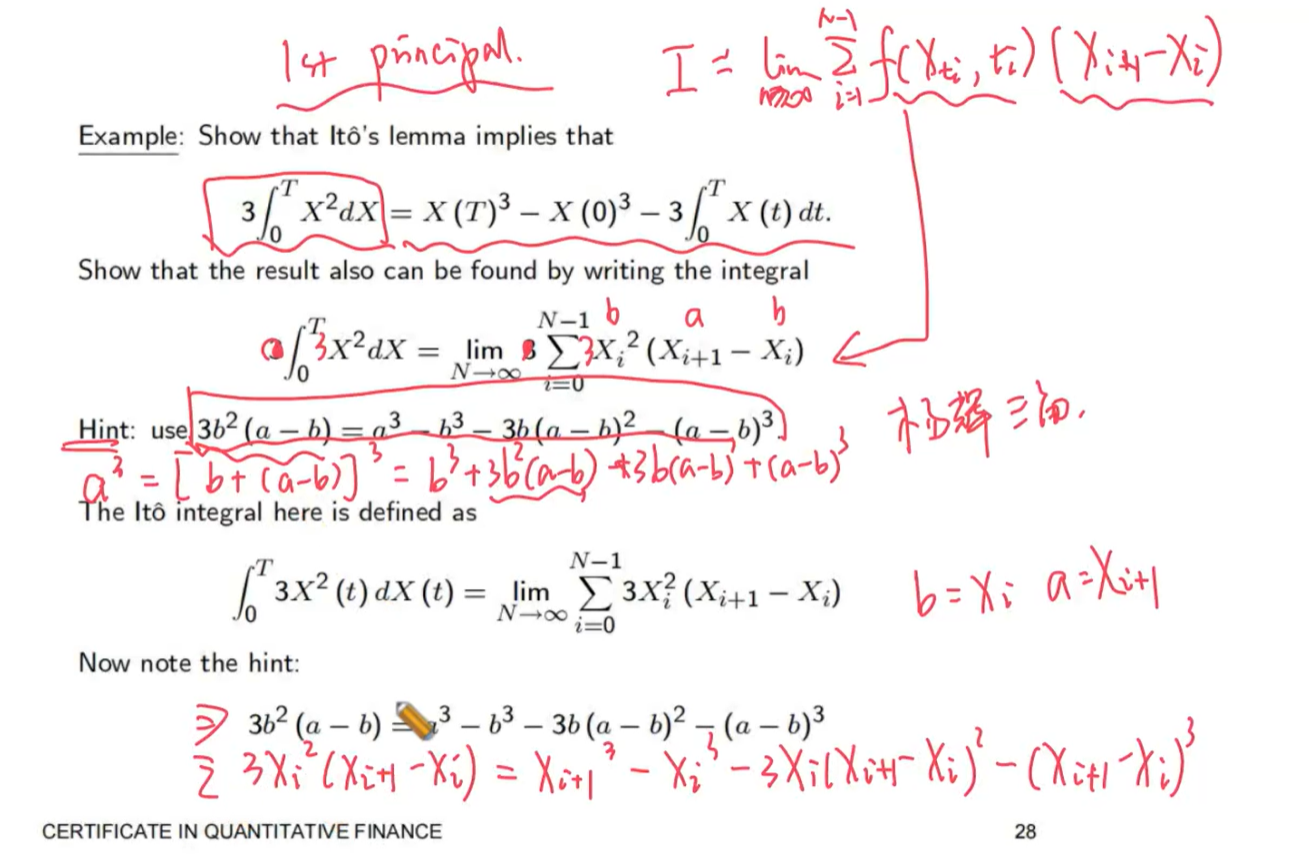 1st principal.
I = lim N→∞ Σ i=1 N-1 f(X_{ti}, ti) (X_{i+1} - X_i)
Example: Show that Itô's lemma implies that
3∫_0^T X² dX = X(T)³ − X(0)³ − 3∫_0^T X(t) dt.
Show that the result also can be found by writing the integral
b a b
∫_0^T 3X² dX = lim N→∞ Σ i=0 N−1 3X_i² (X_{i+1} − X_i)
Hint: use 3b² (a − b) = a³ − b³ − 3b (a − b)² − (a − b)³.
a³ = [b + (a-b)]³ = b³ + 3b²(a-b) + 3b(a-b)² + (a-b)³
The Itô integral here is defined as
∫_0^T 3X² (t) dX (t) = lim N→∞ Σ i=0 N−1 3X_i² (X_{i+1} − X_i)
b = X_i a = X_{i+1}
Now note the hint:
⇒ 3b² (a − b) = a³ − b³ − 3b (a − b)² − (a − b)³
Σ 3X_i² (X_{i+1} - X_i) = X_{i+1}³ - X_i³ - 3X_i (X_{i+1} - X_i)² - (X_{i+1} - X_i)³
CERTIFICATE IN QUANTITATIVE FINANCE
28